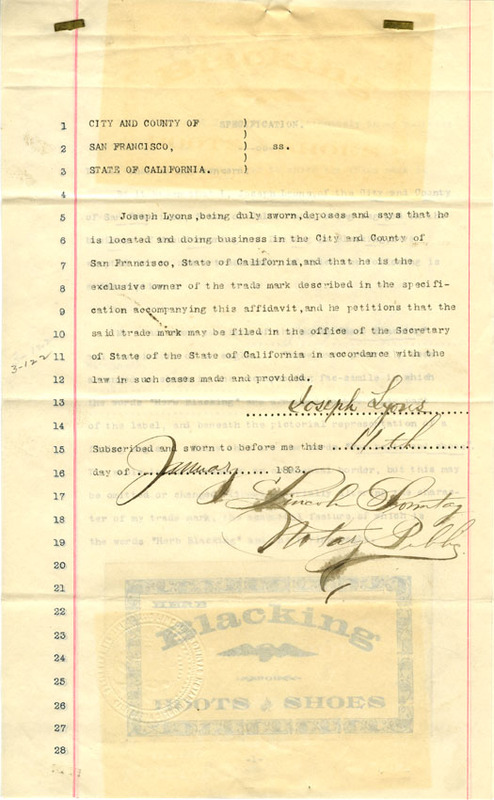 1 CITY AND COUNTY OF )
)
2 SAN FRANCISCO, ) ss.
)
3 STATE OF CALIFORNIA. )
4
5 Joseph Lyons, being duly sworn, deposes and says that he
6 is located and doing business in the City and County of
7 San Francisco, State of California, and that he is the
8 exclusive owner of the trade mark described in the specifi-
9 cation accompanying this affidavit, and he petitions that the
10 said trade mark may be filed in the office of the Secretary
3-122
11 of State of the State of California in accordance with the
12 law in such cases made and provided.
13 Joseph Lyons
14
15 Subscribed and sworn to before me this
16 day of January 1893.
17 Lincoln Sonntag
18
19 Notary Public
20
21
22 HERB
23 Blacking
24
25
26 BOOTS & SHOES
27
28